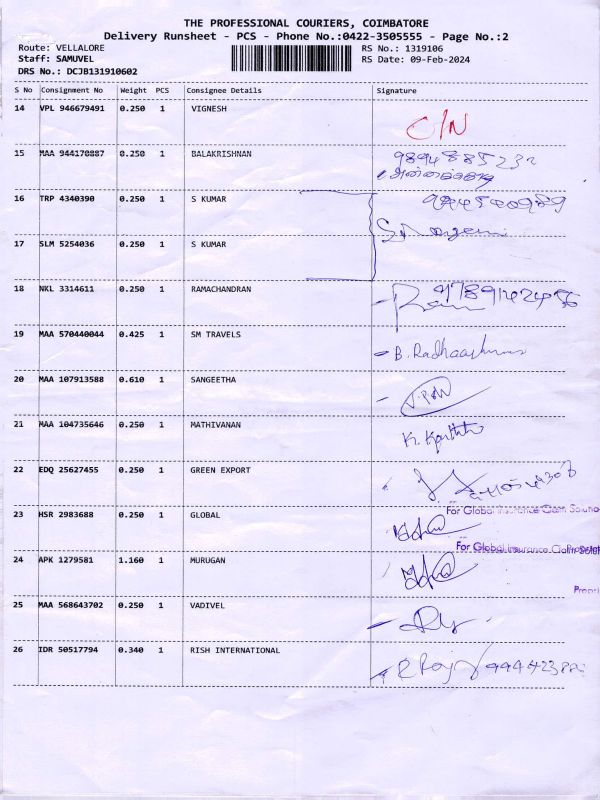 THE PROFESSIONAL COURIERS, COIMBATORE
Delivery Runsheet - PCS - Phone No.:0422-3505555 - Page No.:2
Route: VELLALORE RS No.: 1319106
Staff: SAMUVEL RS Date: 09-Feb-2024
DRS No.: DCJB131910602
S No Consignment No Weight PCS Consignee Details Signature
14 VPL 946679491 0.250 1 VIGNESH
O/N
15 MAA 944170887 0.250 1 BALAKRISHNAN
16 TRP 4340390 0.250 1 S KUMAR
17 SLM 5254036 0.250 1 S KUMAR
18 NKL 3314611 0.250 1 RAMACHANDRAN
19 MAA 570440044 0.425 1 SM TRAVELS
20 MAA 107913588 0.610 1 SANGEETHA
21 MAA 104735646 0.250 1 MATHIVANAN
22 EDQ 25627455 0.250 1 GREEN EXPORT
For Global Insurance Claim
23 HSR 2983688 0.250 1 GLOBAL
For Global Insurance Claim
24 APK 1279581 1.160 1 MURUGAN
25 MAA 568643702 0.250 1 VADIVEL
26 IDR 50517794 0.340 1 RISH INTERNATIONAL